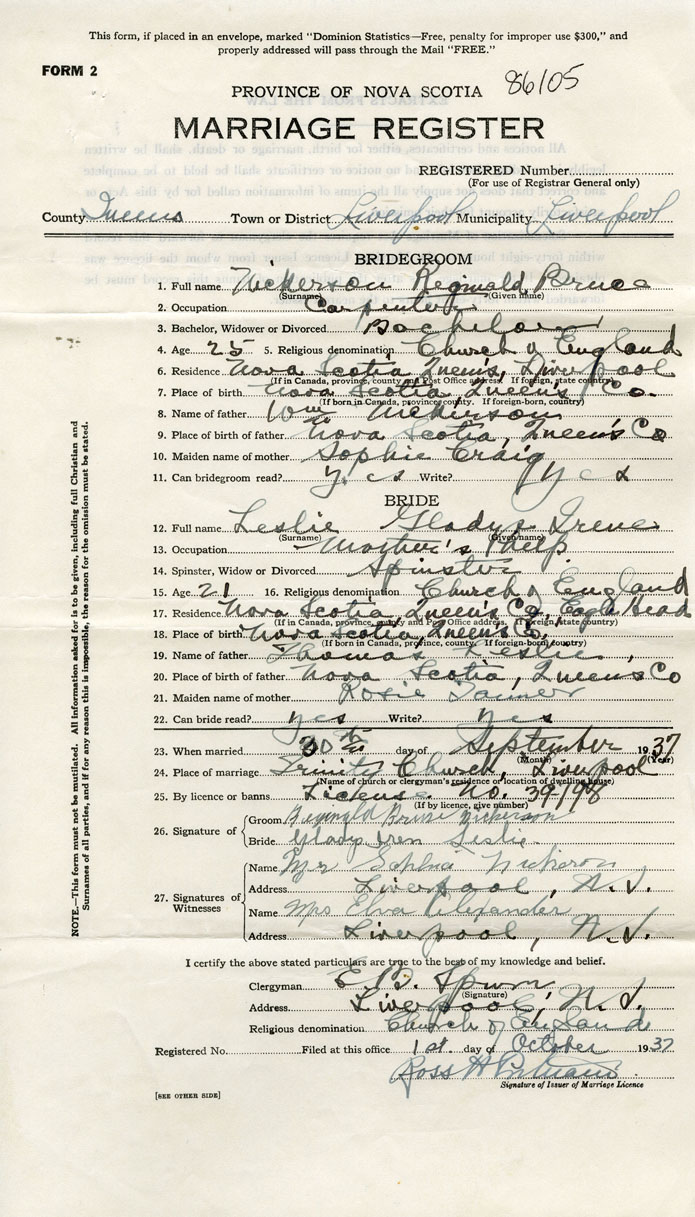 This form, if placed in an envelope, marked "Dominion Statistics—Free, penalty for improper use $300," and
properly addressed will pass through the Mail "FREE."
FORM 2
86105
PROVINCE OF NOVA SCOTIA
MARRIAGE REGISTER
REGISTERED Number
(For use of Registrar General only)
County Queens Town or District Liverpool Municipality Liverpool
BRIDEGROOM
1. Full name Nickerson Reginald Bruce
(Surname) (Given name)
2. Occupation Carpenter
3. Bachelor, Widower or Divorced Bachelor
4. Age 25 5. Religious denomination Church of England
6. Residence Nova Scotia Queen's, Liverpool
(If in Canada, province, county and Post Office address. If foreign, state country)
7. Place of birth Nova Scotia, Queen's Co.
(If born in Canada, province, county. If foreign-born, country)
8. Name of father Wm Nickerson
9. Place of birth of father Nova Scotia, Queen's Co
10. Maiden name of mother Sophie Craig
11. Can bridegroom read? Yes Write? Yes
BRIDE
12. Full name Leslie Gladys Irene
(Surname) (Given name)
13. Occupation Mother's Help
14. Spinster, Widow or Divorced Spinster
15. Age 21 16. Religious denomination Church of England
17. Residence Nova Scotia, Queen's Co, Eagle Head
(If in Canada, province, county and Post Office address. If foreign, state country)
18. Place of birth Nova Scotia, Queen's Co,
(If born in Canada, province, county. If foreign-born, country)
19. Name of father Thomas Leslie
20. Place of birth of father Nova Scotia, Queens Co
21. Maiden name of mother Rosie Tanner
22. Can bride read? yes Write? yes
23. When married 30th day of September 1937
(Month) (Year)
24. Place of marriage Trinity Church, Liverpool
(Name of church or clergyman's residence or location of dwelling house)
25. By licence or banns License No. 39198
(If by licence, give number)
26. Signature of
Groom Reginald Bruce Nickerson
Bride Gladys Iren Leslie
27. Signatures of Witnesses
Name Mrs Sophia Nickerson
Address Liverpool, N.S.
Name Mrs Elva Alexander
Address Liverpool, N.S.
I certify the above stated particulars are true to the best of my knowledge and belief.
Clergyman E. B. Spurr
(Signature)
Address Liverpool, N.S.
Religious denomination Church of England
Registered No. Filed at this office 1st. day of October 1937
Ross H
Signature of Issuer of Marriage Licence
[SEE OTHER SIDE]
NOTE.—This form must not be mutilated. All information asked for is to be given, including full Christian and
Surnames of all parties, and if for any reason this is impossible, the reason for the omission must be stated.